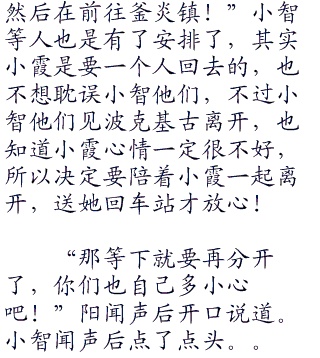 然后在前往釜炎镇！”小智
等人也是有了安排了，其实
小霞是要一个人回去的，也
不想耽误小智他们，不过小
智他们见波克基古离开，也
知道小霞心情一定很不好，
所以决定要陪着小霞一起离
开，送她回车站才放心！
“那等下就要再分开
了，你们也自己多小心
吧！”阳闻声后开口说道。
小智闻声后点了点头。。